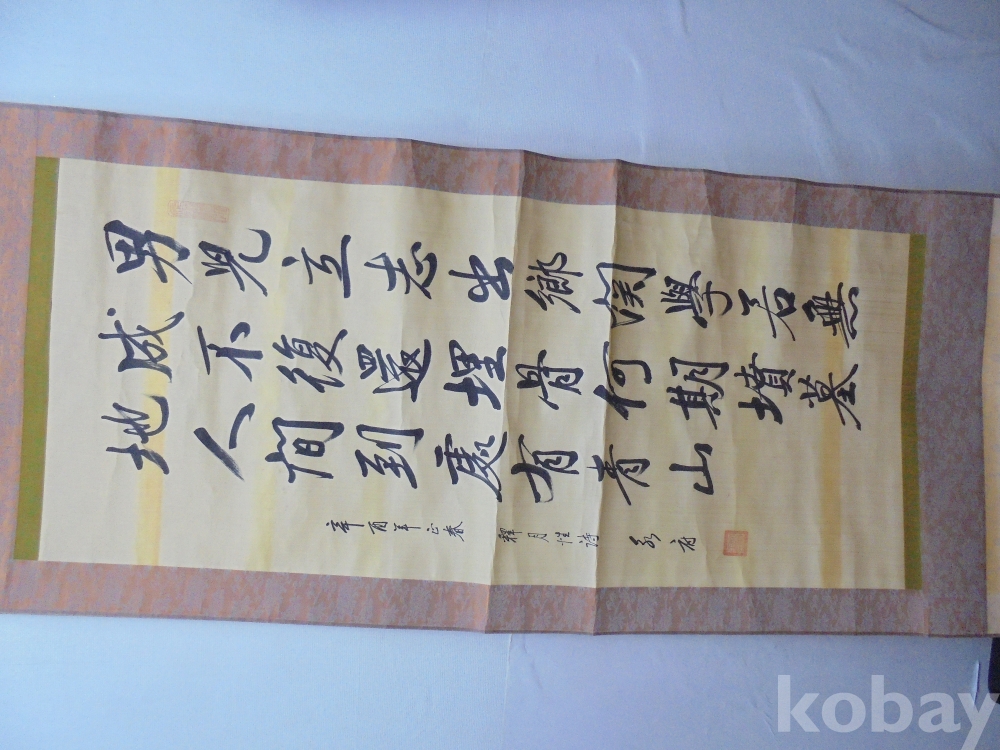 男兒立志出鄉関學若無
成不復還埋骨何期墳墓
地人間到處有青山
辛酉年正春 釋月性詩
kobay